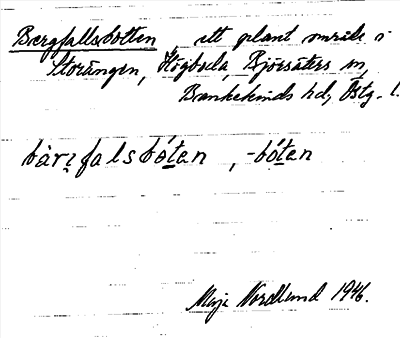 Bergfallsbotten, ett plant område i
Storängen, Högboda, Björsäters sn,
Bankekinds hd, Östg. l.
bàrifalsbòten, -bóten
Maja Nordlund 1946.